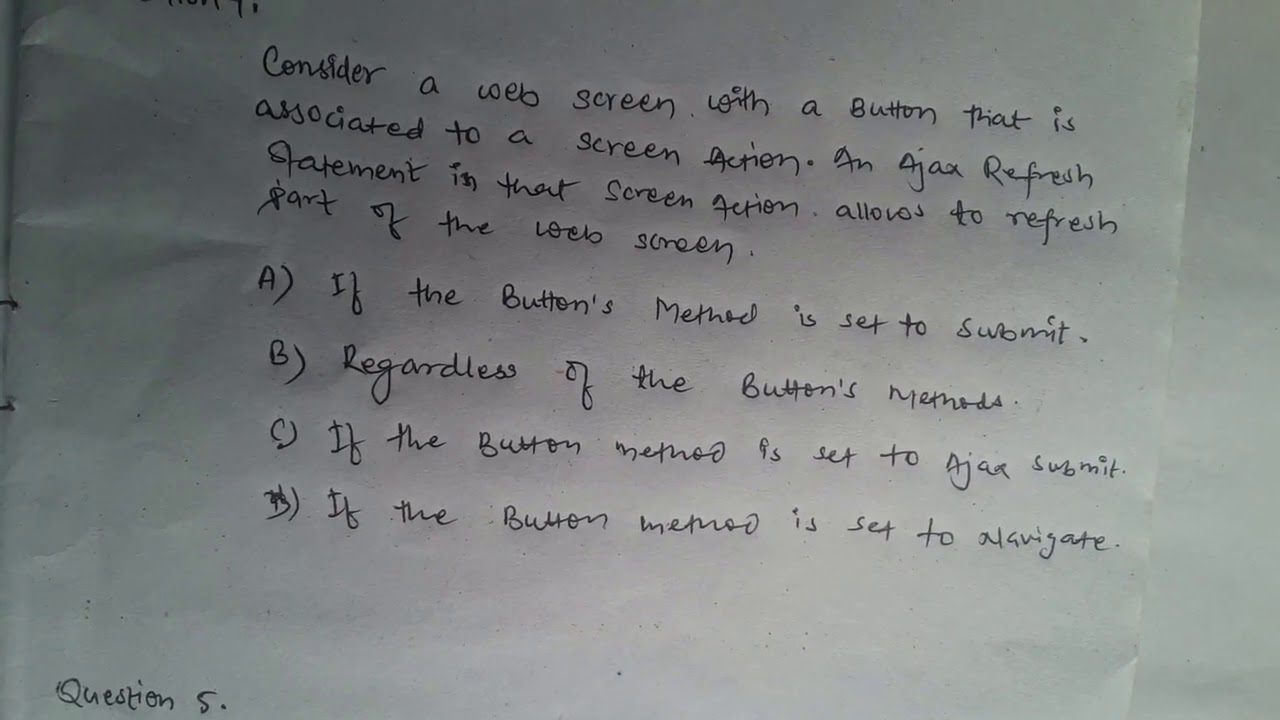 Consider a web screen with a Button that is
associated to a screen Action. An Ajax Refresh
Statement in that Screen Action. allows to refresh
part of the web screen.
A) If the Button's Method is set to submit.
B) Regardless of the Button's Methods.
C) If the Button method is set to Ajax submit.
D) If the Button method is set to Navigate.
Question 5.